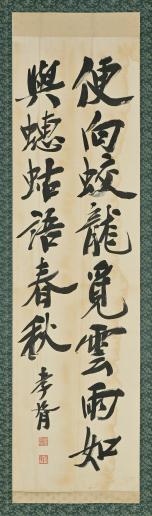 便向蛟龍覓雲雨如
與蟪蛄語春秋
孝胥